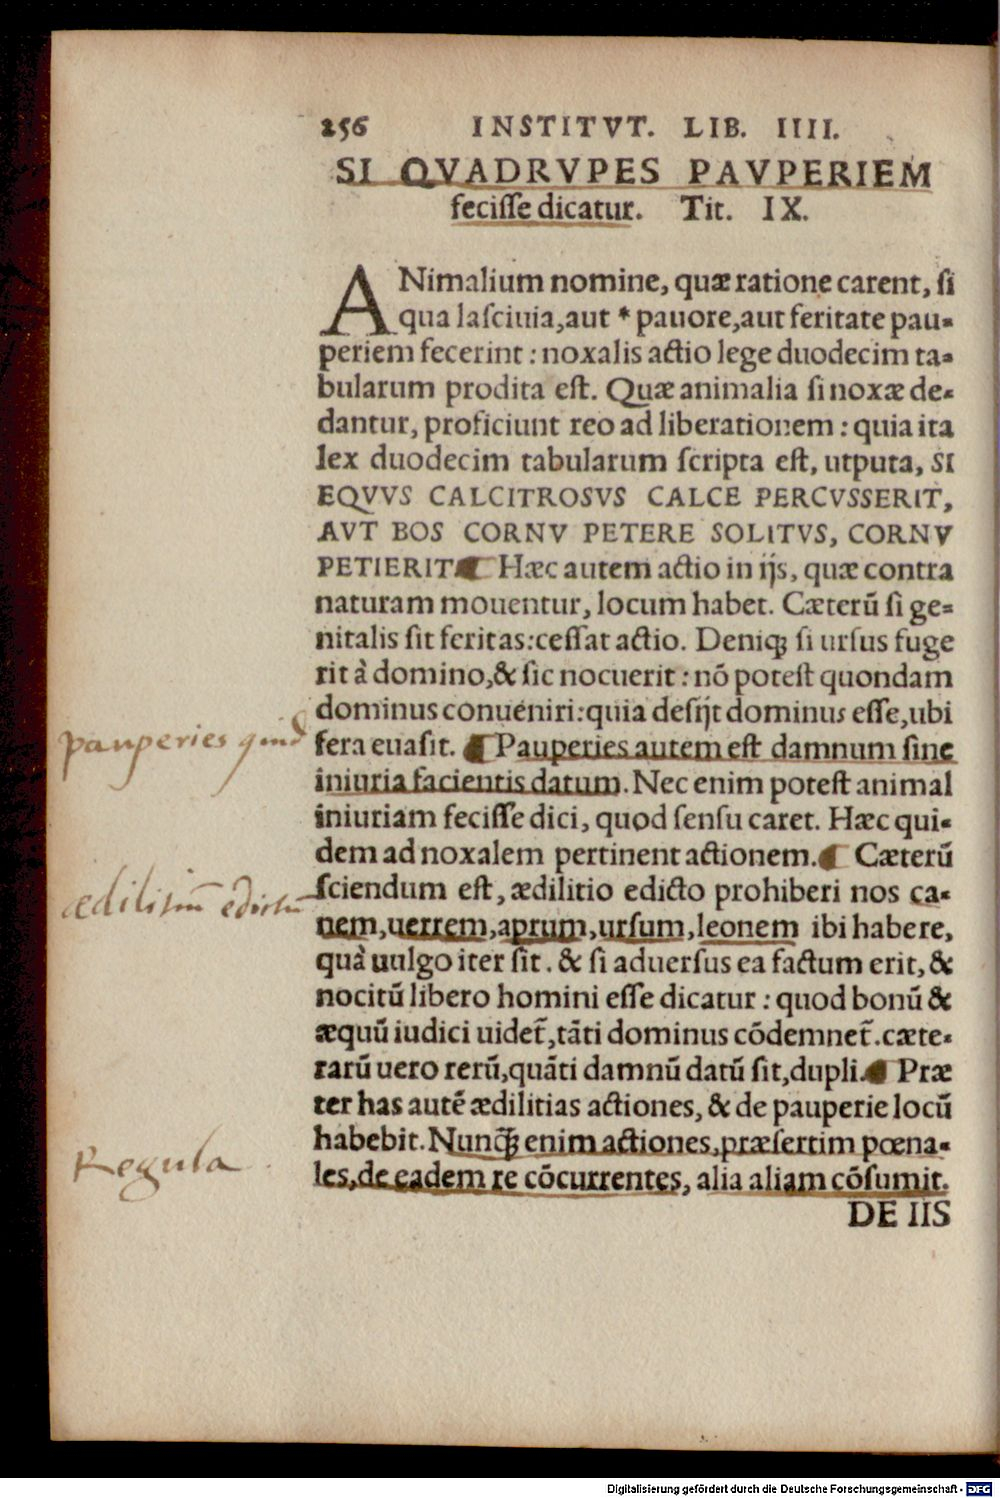 256 INSTITVT. LIB. IIII.
SI QVADRVPES PAVPERIEM
feciſſe dicatur. Tit. IX.
ANimalium nomine, quæ ratione carent, ſi
qua laſciuia, aut * pauore, aut feritate pau-
periem fecerint: noxalis actio lege duodecim ta-
bularum prodita eſt. Quæ animalia ſi noxæ de-
dantur, proficiunt reo ad liberationem: quia ita
lex duodecim tabularum ſcripta eſt, utputa, SI
EQVVS CALCITROSVS CALCE PERCVSSERIT,
AVT BOS CORNV PETERE SOLITVS, CORNV
PETIERIT ¶ Hæc autem actio in ijs, quæ contra
naturam mouentur, locum habet. Cæterũ ſi ge-
nitalis ſit feritas: ceſſat actio. Deniqꝫ ſi urſus fuge
rit à domino, & ſic nocuerit: nõ poteſt quondam
dominus conueniri: quia deſijt dominus eſſe, ubi
pauperies quid
fera euaſit. ¶ Pauperies autem eſt damnum ſine
iniuria facientis datum. Nec enim poteſt animal
iniuriam feciſſe dici, quod ſenſu caret. Hæc qui-
dem ad noxalem pertinent actionem. ¶ Cæterũ
ædilitiũ edictũ
ſciendum eſt, ædilitio edicto prohiberi nos ca-
nem, uerrem, aprum, urſum, leonem ibi habere,
quà uulgo iter ſit. & ſi aduerſus ea factum erit, &
nocitũ libero homini eſſe dicatur: quod bonũ &
æquũ iudici uidet̃, tãti dominus cõdemnet̃. cæte-
rarũ uero rerũ, quãti damnũ datũ ſit, dupli. ¶ Præ
ter has autẽ ædilitias actiones, & de pauperie locũ
habebit. Nunq̃ꝫ enim actiones, præſertim pœna-
Regula
les, de eadem re cõcurrentes, alia aliam cõſumit.
DE IIS
Digitalisierung gefördert durch die Deutsche Forschungsgemeinschaft - DFG